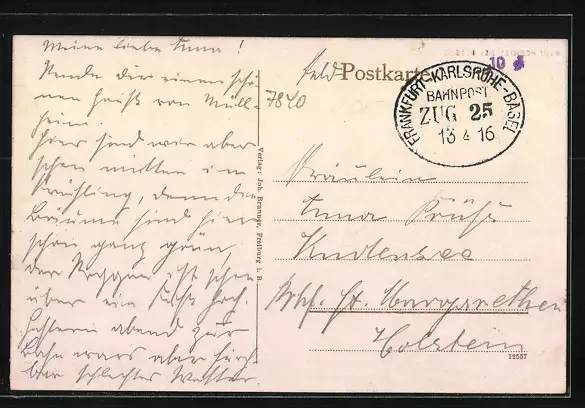 Meine liebe Anna!
Sende dir einen schö-
nen Gruß von Müll-
heim.
Hier sind wir aber
schon mitten im
Frühling, denn die
Bäume sind hier
schon ganz grün,
der Roggen ist schon
über ein Fuß hoch.
Gestern abend zur
Bahn wars aber furcht-
bar schlechtes Wetter.
Verlag: Joh. Brunner, Freiburg i. B.
Feld-Postkarte
7840
10
FRANKFURT-KARLSRUHE-BASEL
BAHNPOST
ZUG 25
13 4 16
Fräulein
Anna
Bhf. St. Margarethen
Holstein
18557